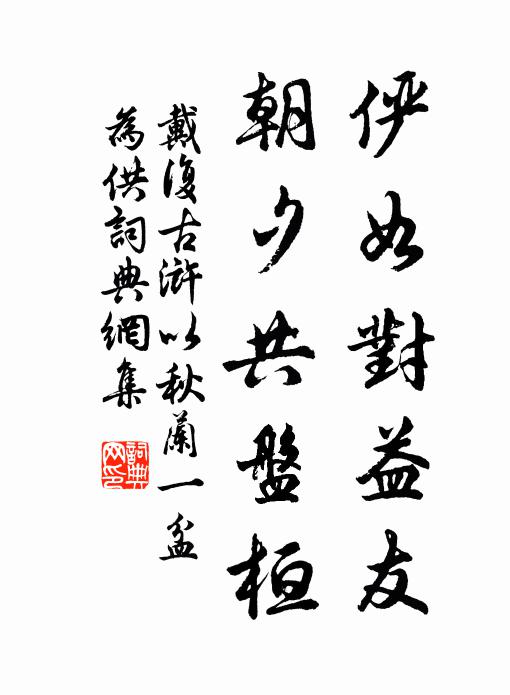 俨如對益友
朝夕共盤桓
戴復古滸以秋蘭一盆
為供詞典網集
詞典網印